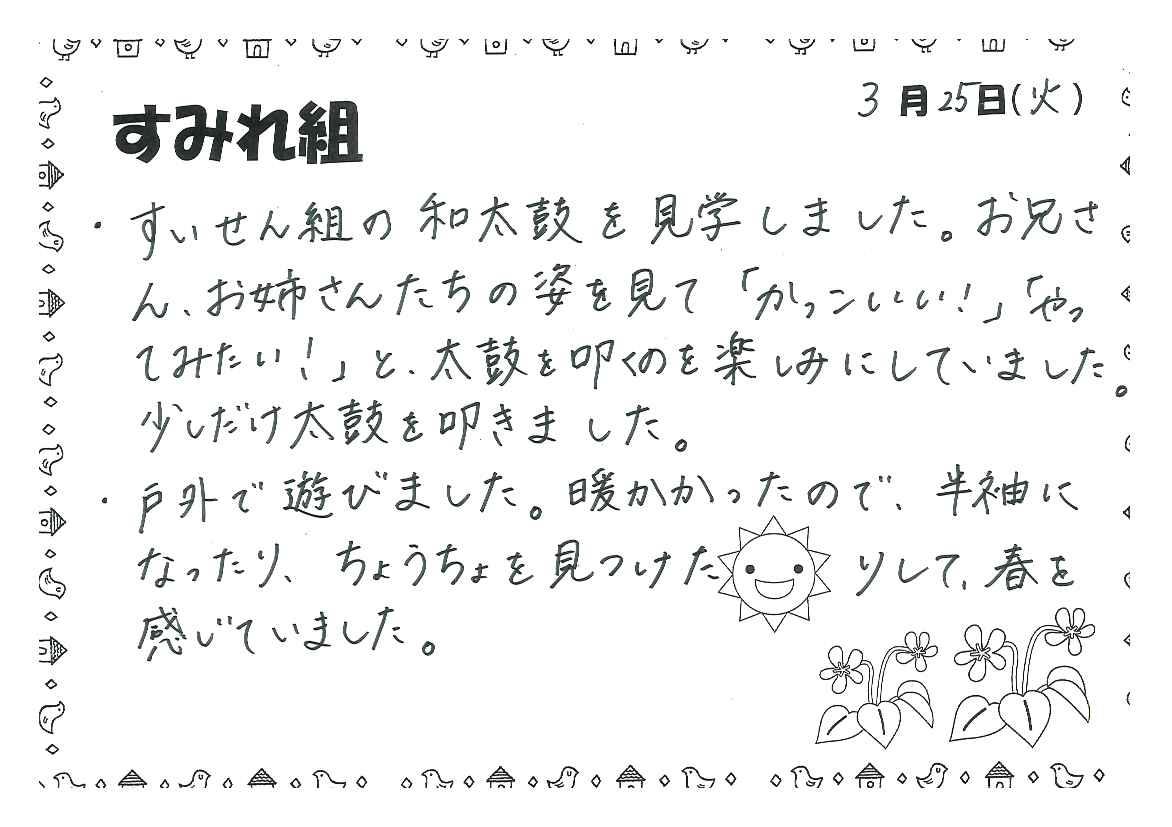 3月25日(火)
すみれ組
・すいせん組の和太鼓を見学しました。お兄さ
ん、お姉さんたちの姿を見て「かっこいい!」「やっ
てみたい!」と、太鼓を叩くのを楽しみにしていました。
少しだけ太鼓を叩きました。
・戸外で遊びました。暖かかったので、半袖に
なったり、ちょうちょを見つけたりして、春を
感じていました。